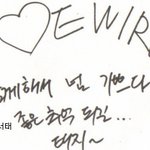 ♡EWIR
께해서 넘 기쁘다
좋은 추억 되길...
서태
태지~